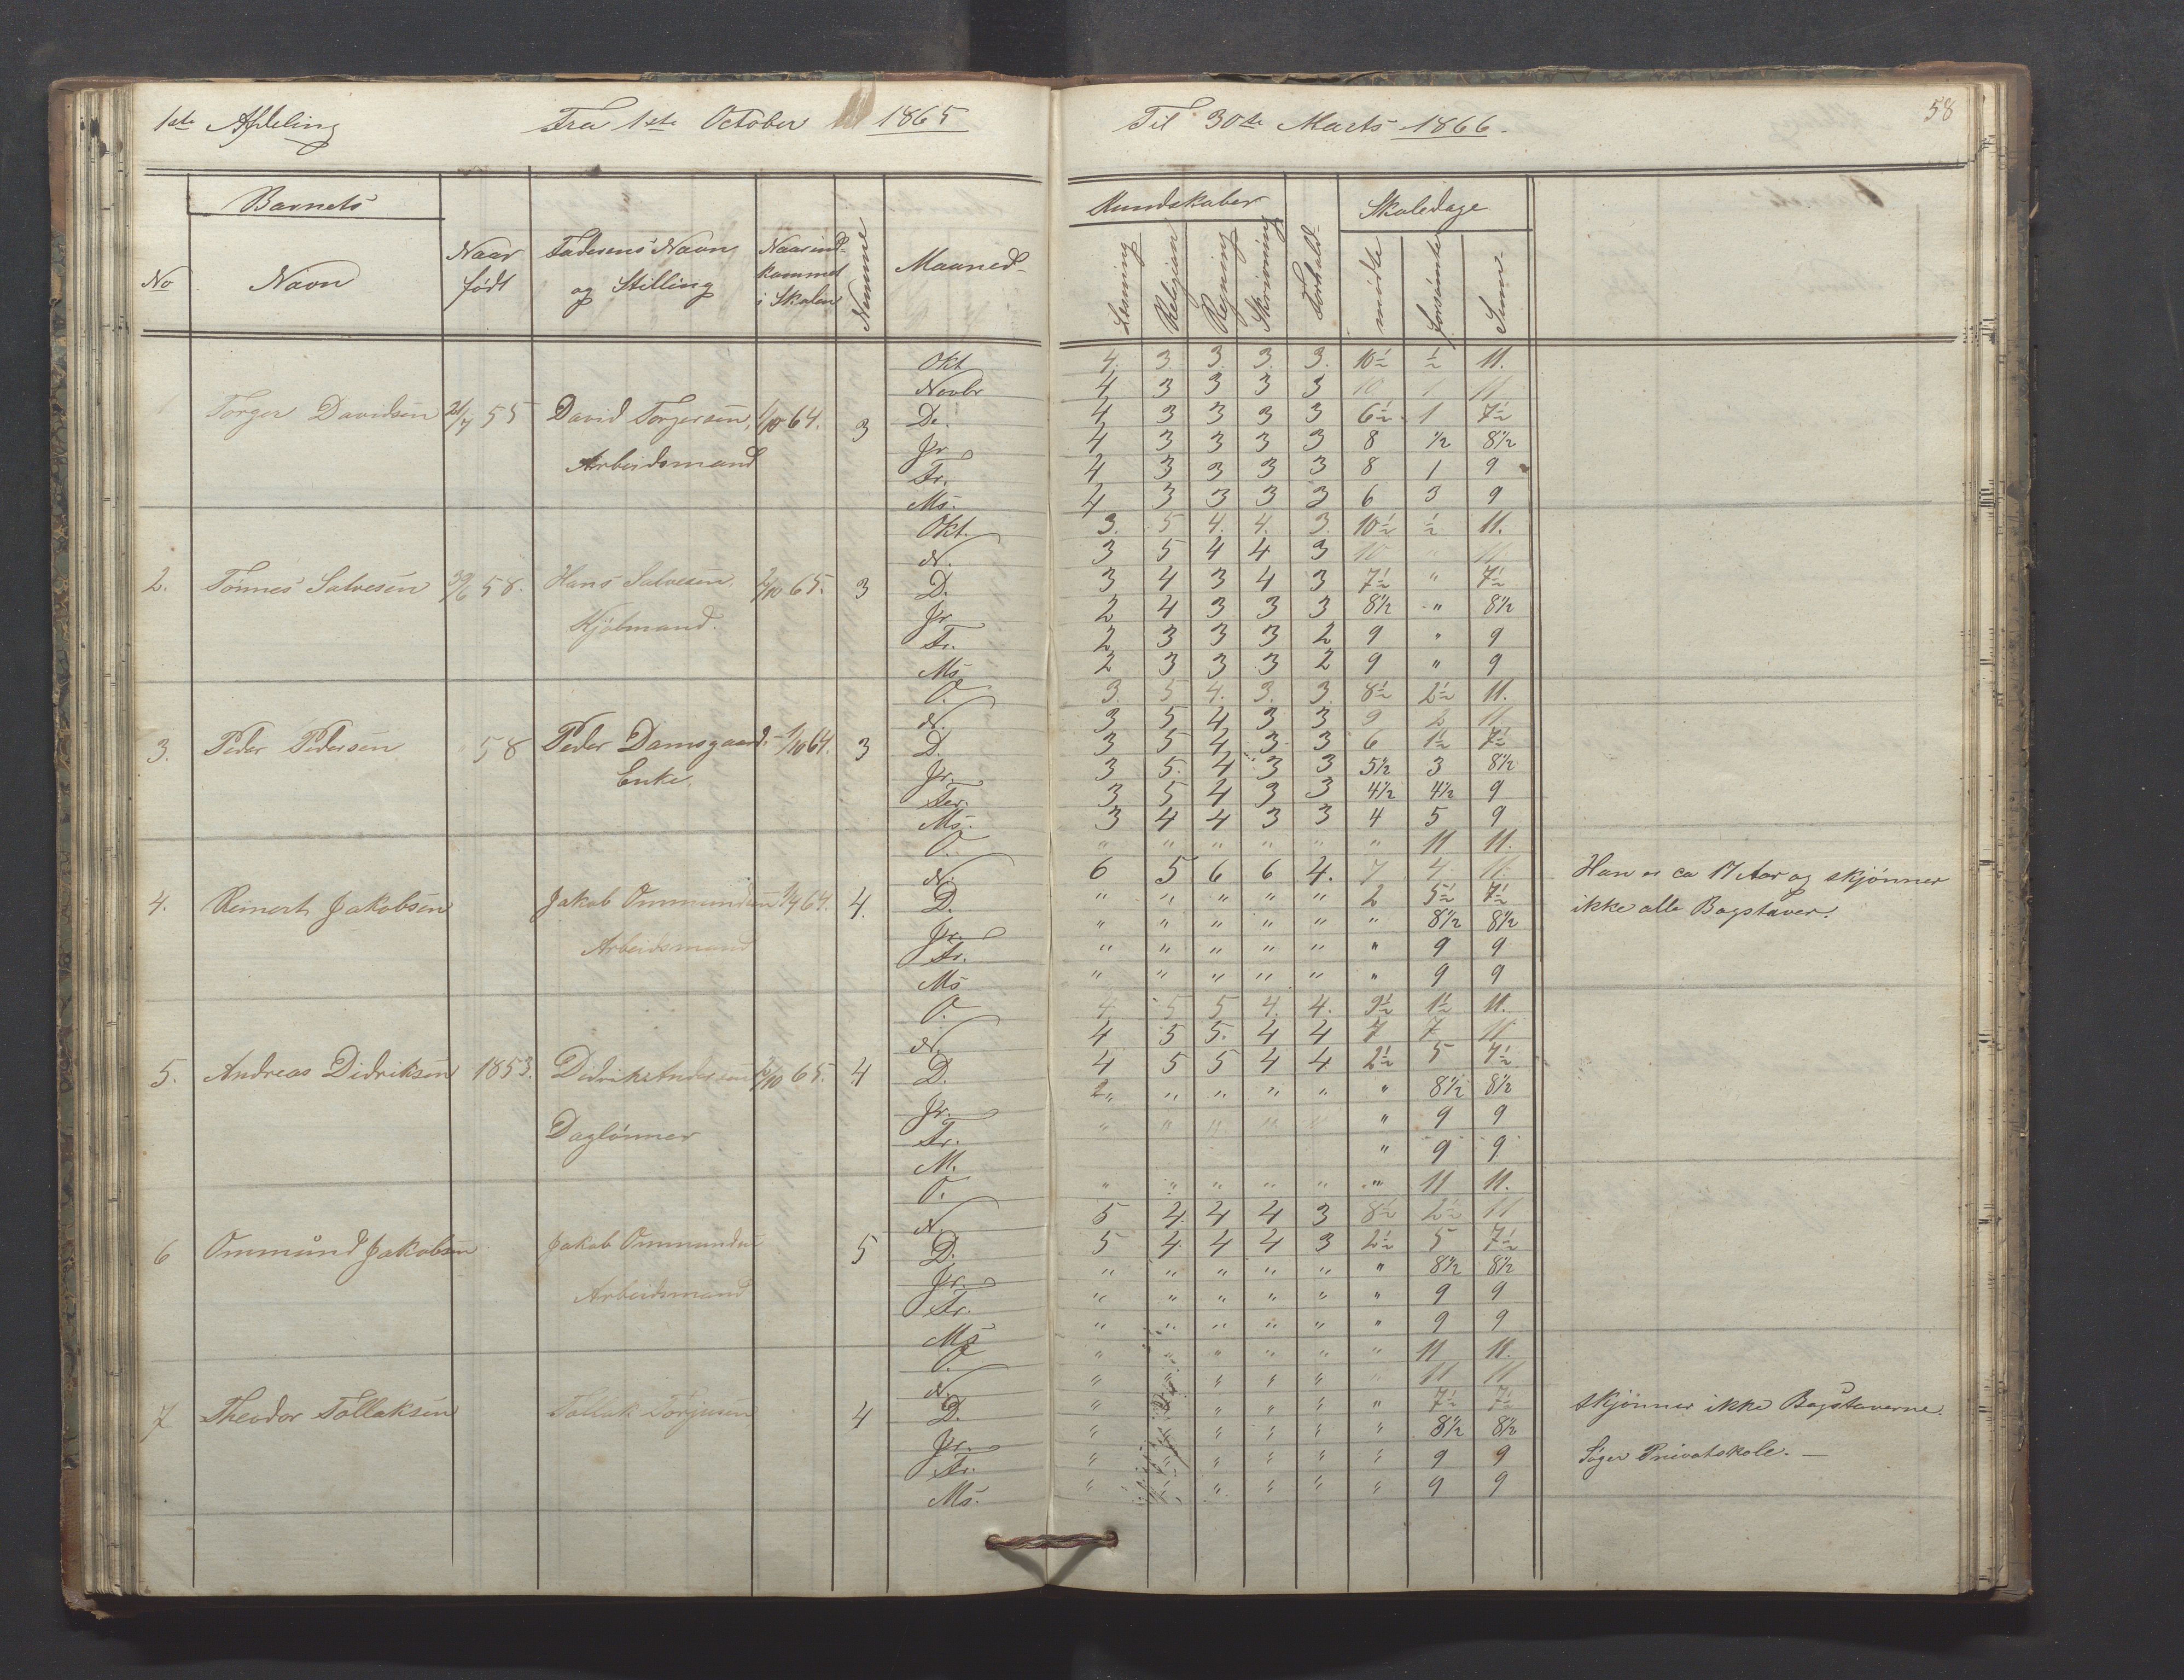 1ste Afdeling Fra 1ste October 1865 Til 30te Marts 1866. 58
No Barnets Navn Naar født Faderens Navn og Stilling Naar ind-kommet i Skolen Nemme Maaned Kundskaber Læsning Religion Regning Skrivning Forhold Skoledage mødte forsömte Sum
Okt 4. 3 3. 3. 3. 10½ ½ 11.
Novbr 4 3 3 3 3 10 1 11
1 Torger Davidsen 21/7 55 David Torgersen, 1/10 64. 3 De. 4 3 3 3 3 6½ 1 7½
Jr 4 3 3 3 3 8 ½ 8½
Arbeidsmand Fr. 4 3 3 3 3 8 1 9
Ms. 4 3 3 3 3 6 3 9
Okt. 3. 5 4. 4. 3. 10½ ½ 11.
N. 3 5 4 4 3 10 " 11
2. Tönnes Salvesen 58. Hans Salvesen, 2/10 65. 3 D. 3 4 3 4 3 7½ " 7½
Jr 2 4 3 3 3 8½ " 8½
Kjöbmand. Fr. 2 3 3 3 2 9 " 9
Ms 2 3 3 3 2 9 " 9
O. 3. 5 4. 3. 3. 8½ 2½ 11.
N. 3 5 4 3 3 9 2 11.
3. Peder Pedersen 58 Peder Damsgaard 1/10 64. 3 D. 3 5 4 3 3 6 1½ 7½
Enke. Jr. 3 5. 4 3 3 5½ 3 8½
Fer. 3 5 4 3 3 4½ 4½ 9
Ms. 3 4 4 3 3 4 5 9
O. " " " " " " 11 11.
N. 6 5 6 6 4. 7 4 11. Han er ca 17 Aar og skjönner
4. Reinert Jakobsen Jakob Ommundsen 64. 4. D. " " " " " 2 5½ 7½ ikke alle Bogstaver.
Jr. " " " " " " 8½ 8½
Arbeidsmand Fr. " " " " " " 9 9
Ms " " " " " " 9 9
O. 4. 5 5 4. 4. 9½ 1½ 11.
N. 4 5 5. 4 4 7 7 11
5. Andreas Didriksen 1853. Didrik Andersen /10 65. 4 D. 4 5 5 4 4 2½ 5 7½
Jr. " " " " " 8½ 8½
Daglönner Fr. " " " " " " 9 9
M. " 9 9
O. " " " " " " 11 11.
N. 5 4 4 4 3 8½ 2½ 11
6 Ommund Jakobsen Jakob Ommundsen 5 D. 5 4 4 4 3 2½ 5 7½
Jr. " " " " " " 8½ 8½
Arbeidsmand Fr. " " " " " " 9 9
Ms " " " " " " 9 9
O. " " " " " " 11 11.
N. " " " " " " 11 11
7 Theodor Tollaksen Tollak Torjusen 4 D. " " " " " 7½ 7½ Skjönner ikke Bogstaverne.
Jr. " " " " " 8½ 8½
Fr. " " " " " " 9 9 Söger Privatskole. —
Ms. " " " " " " 9 9